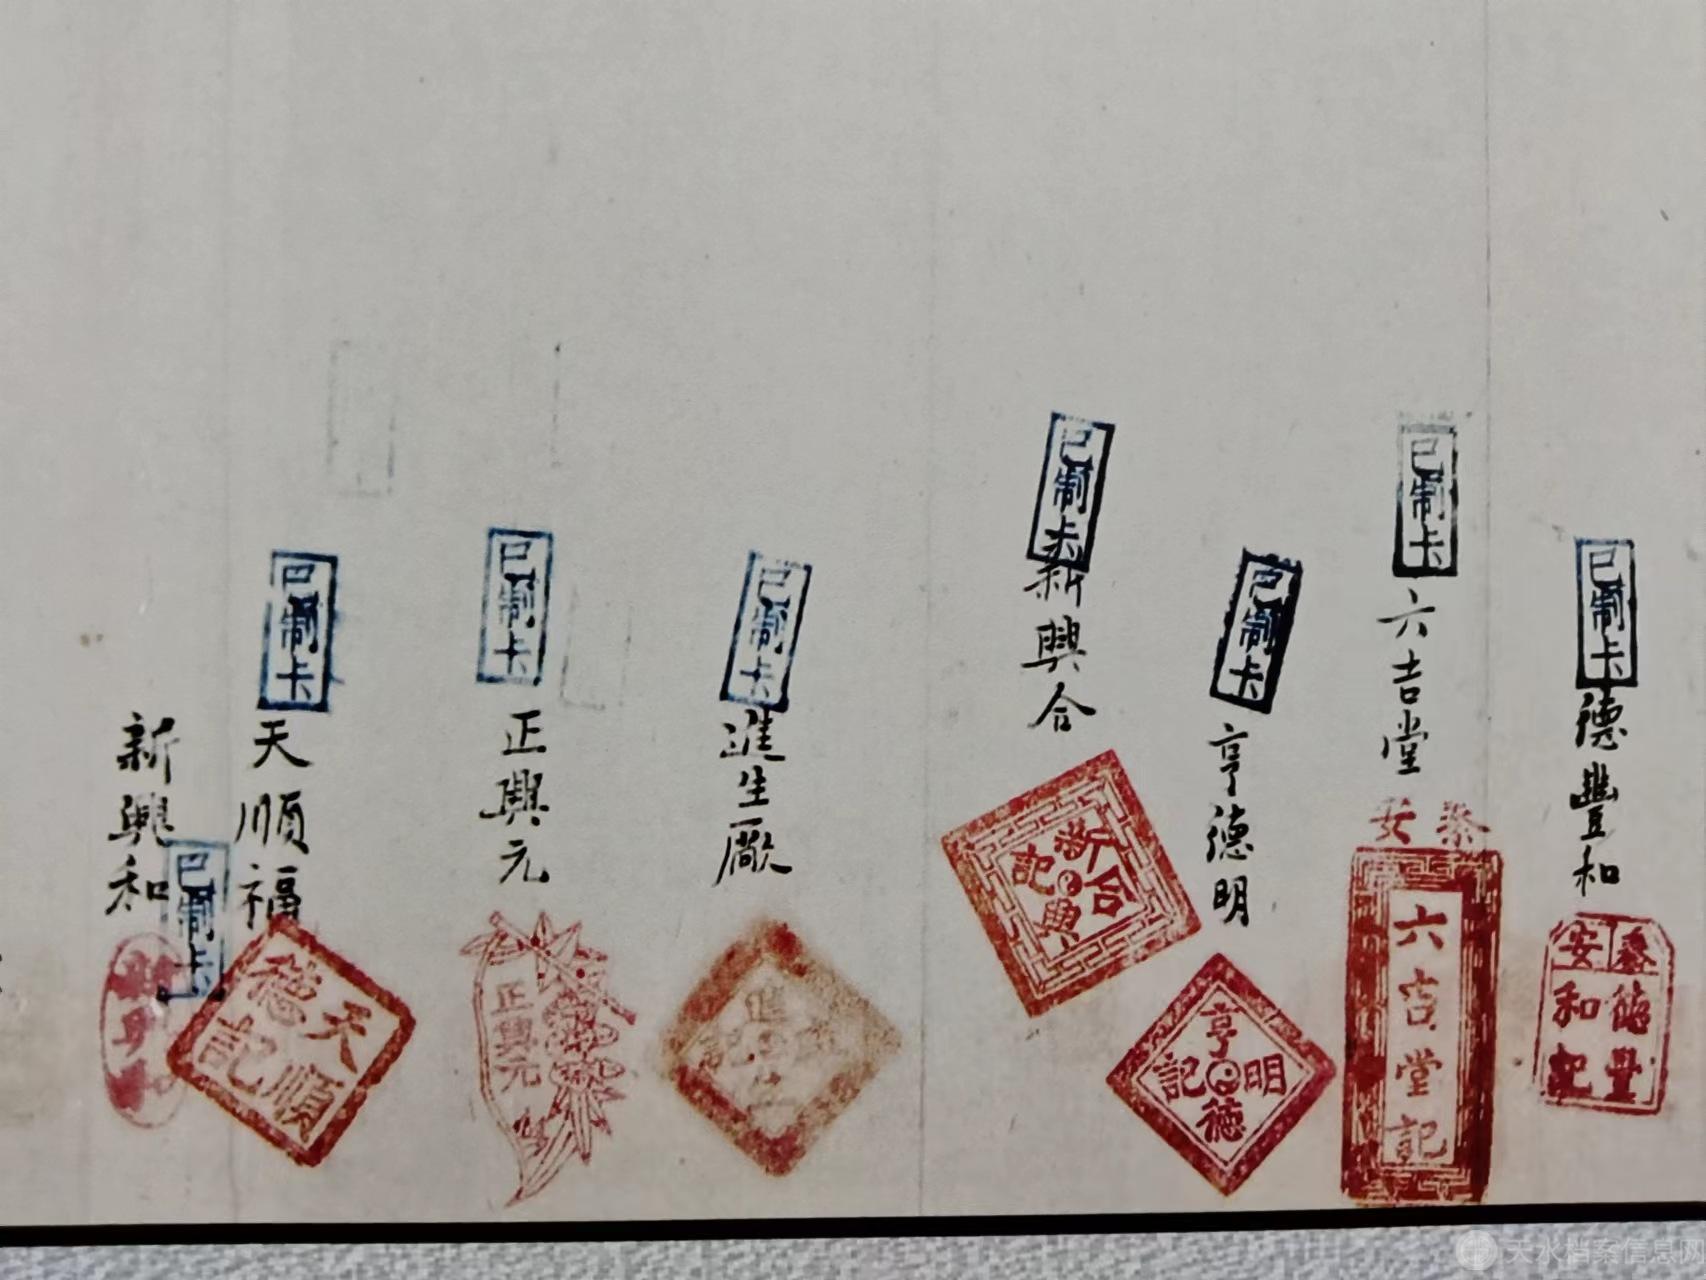 已制卡
德豐和
泰安
德豐
和記
已制卡
六吉堂
泰安
六吉堂記
已制卡
亨德明
亨德明記
已制卡
新興合
新興合記
已制卡
進生廠
已制卡
正興元
正興元
已制卡
天順福
天順
德記
新興和
已制卡
天水档案信息网